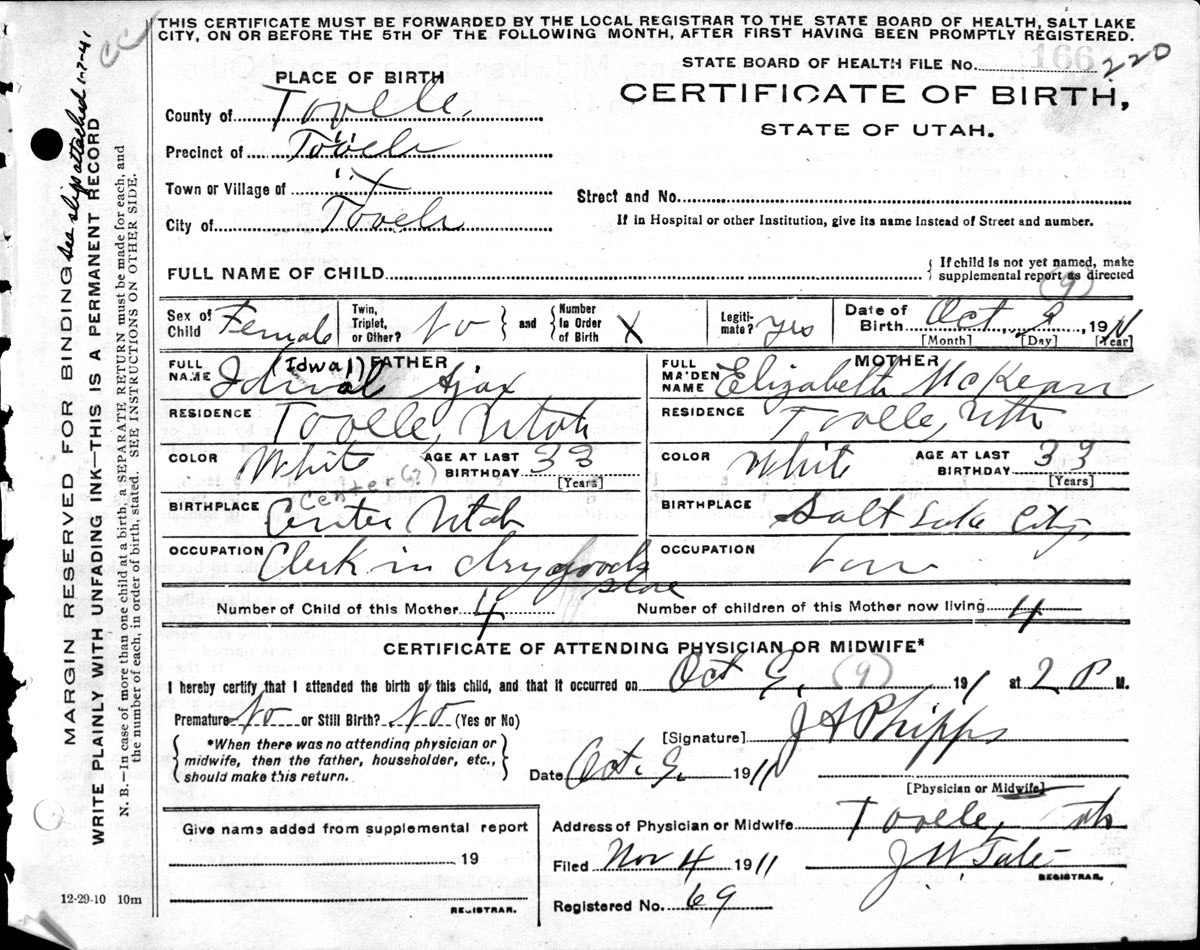 THIS CERTIFICATE MUST BE FORWARDED BY THE LOCAL REGISTRAR TO THE STATE BOARD OF HEALTH, SALT LAKE
CITY, ON OR BEFORE THE 5TH OF THE FOLLOWING MONTH, AFTER FIRST HAVING BEEN PROMPTLY REGISTERED.
STATE BOARD OF HEALTH FILE No. 166 220
PLACE OF BIRTH
CERTIFICATE OF BIRTH,
STATE OF UTAH.
County of Tooele
Precinct of Tooele
Town or Village of
City of Tooele
Street and No.
If in Hospital or other Institution, give its name instead of Street and number.
FULL NAME OF CHILD
{ If child is not yet named, make
supplemental report as directed
(9)
Sex of Child Female
Twin, Triplet, or Other? No } and { Number In Order of Birth X
Legiti-mate? yes
Date of Birth Oct 9, 1911
[Month] [Day] [Year]
FULL NAME FATHER (Idwal) Idwal Ajax
FULL MAIDEN NAME MOTHER Elizabeth McKean
RESIDENCE Tooele, Utah
RESIDENCE Tooele, Utah
COLOR White AGE AT LAST BIRTHDAY 33 [Years]
COLOR White AGE AT LAST BIRTHDAY 33 [Years]
Center (?)
BIRTHPLACE Center Utah
BIRTHPLACE Salt Lake City,
OCCUPATION Clerk in dry goods store
OCCUPATION
Number of Child of this Mother 4
Number of children of this Mother now living 4
CERTIFICATE OF ATTENDING PHYSICIAN OR MIDWIFE*
I hereby certify that I attended the birth of this child, and that it occurred on Oct 9, (9) 191 1 at 2 P M.
Premature No or Still Birth? No (Yes or No)
[Signature] J A Phipps
{ *When there was no attending physician or
midwife, then the father, householder, etc.,
should make this return. }
Date Oct. 9. 1911
[Physician or Midwife]
Give name added from supplemental report
19
REGISTRAR.
Address of Physician or Midwife Tooele, Utah
Filed Nov 4 1911
J W Tate
REGISTRAR.
Registered No. 69
12-29-10 10m
MARGIN RESERVED FOR BINDING
See slip attached 1-7-41
WRITE PLAINLY WITH UNFADING INK—THIS IS A PERMANENT RECORD
N. B.—In case of more than one child at a birth, a SEPARATE RETURN must be made for each, and
the number of each, in order of birth, stated. SEE INSTRUCTIONS ON OTHER SIDE.